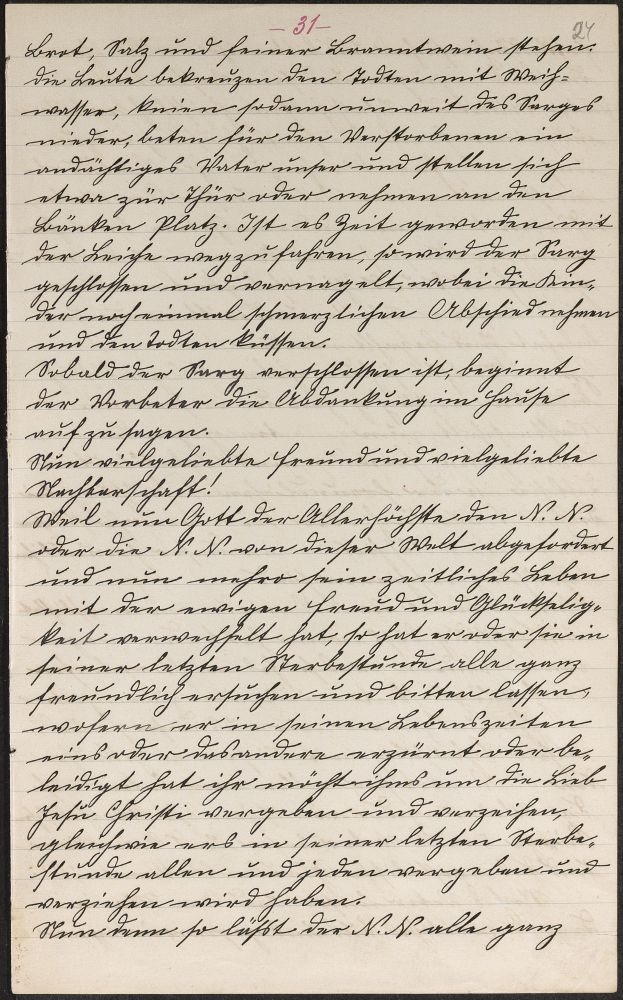 - 31 -
24
Brot, Salz und feiner Branntwein stehen.
Die Leute bekreuzen den Todten mit Weih=
wasser, knien sodann unweit des Sarges
nieder, beten für den Verstorbenen ein
andächtiges Vater unser und stellen sich
etwa zür Thür oder nehmen an den
Bänken Platz. Ist es Zeit geworden mit
der Leiche wegzufahren, so wird der Sarg
geschlossen und vernagelt, wobei die Kin=
der noch einmal schmerzlichen Abschied nehmen
und den Todten küssen.
Sobald der Sarg verschlossen ist, beginnt
der Vorbeter die Abdankung im Hause
auf zu sagen.
Nun vielgeliebte Freund und vielgeliebte
Nachbarschaft!
Weil nun Gott der Allerhöchste den N. N.
oder die N. N. von dieser Welt abgefordert
und nun mehro sein zeitliches Leben
mit der ewigen Freud und Glückselig=
keit verwechselt hat, so hat er oder sie in
seiner letzten Sterbestunde alle ganz
freundlich ersuchen und bitten lassen,
wofern er in seinen Lebenszeiten
eins oder das andere erzürnt oder be=
leidigt hat ihr möcht ihms um die Lieb
Jesu Christi vergeben und verzeihen,
gleichwie ers in seiner letzten Sterbe=
stunde allen und jeden vergeben und
verziehen wird haben.
Nun denn so läßt der N. N. alle ganz